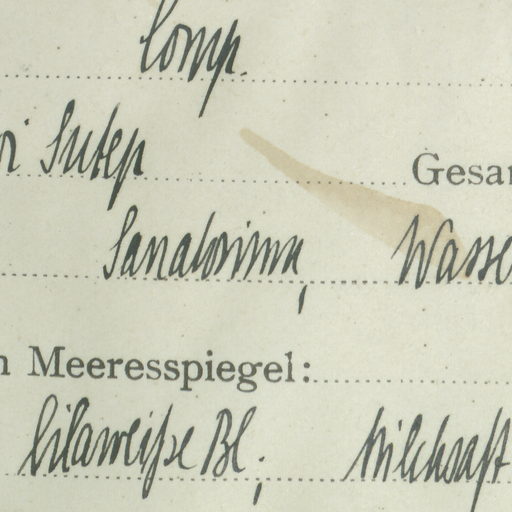 Comp.
oi Sutep Gesam
Sanatorium, Wasse
n Meeresspiegel:
lilaweiße Bl., Milchsaft